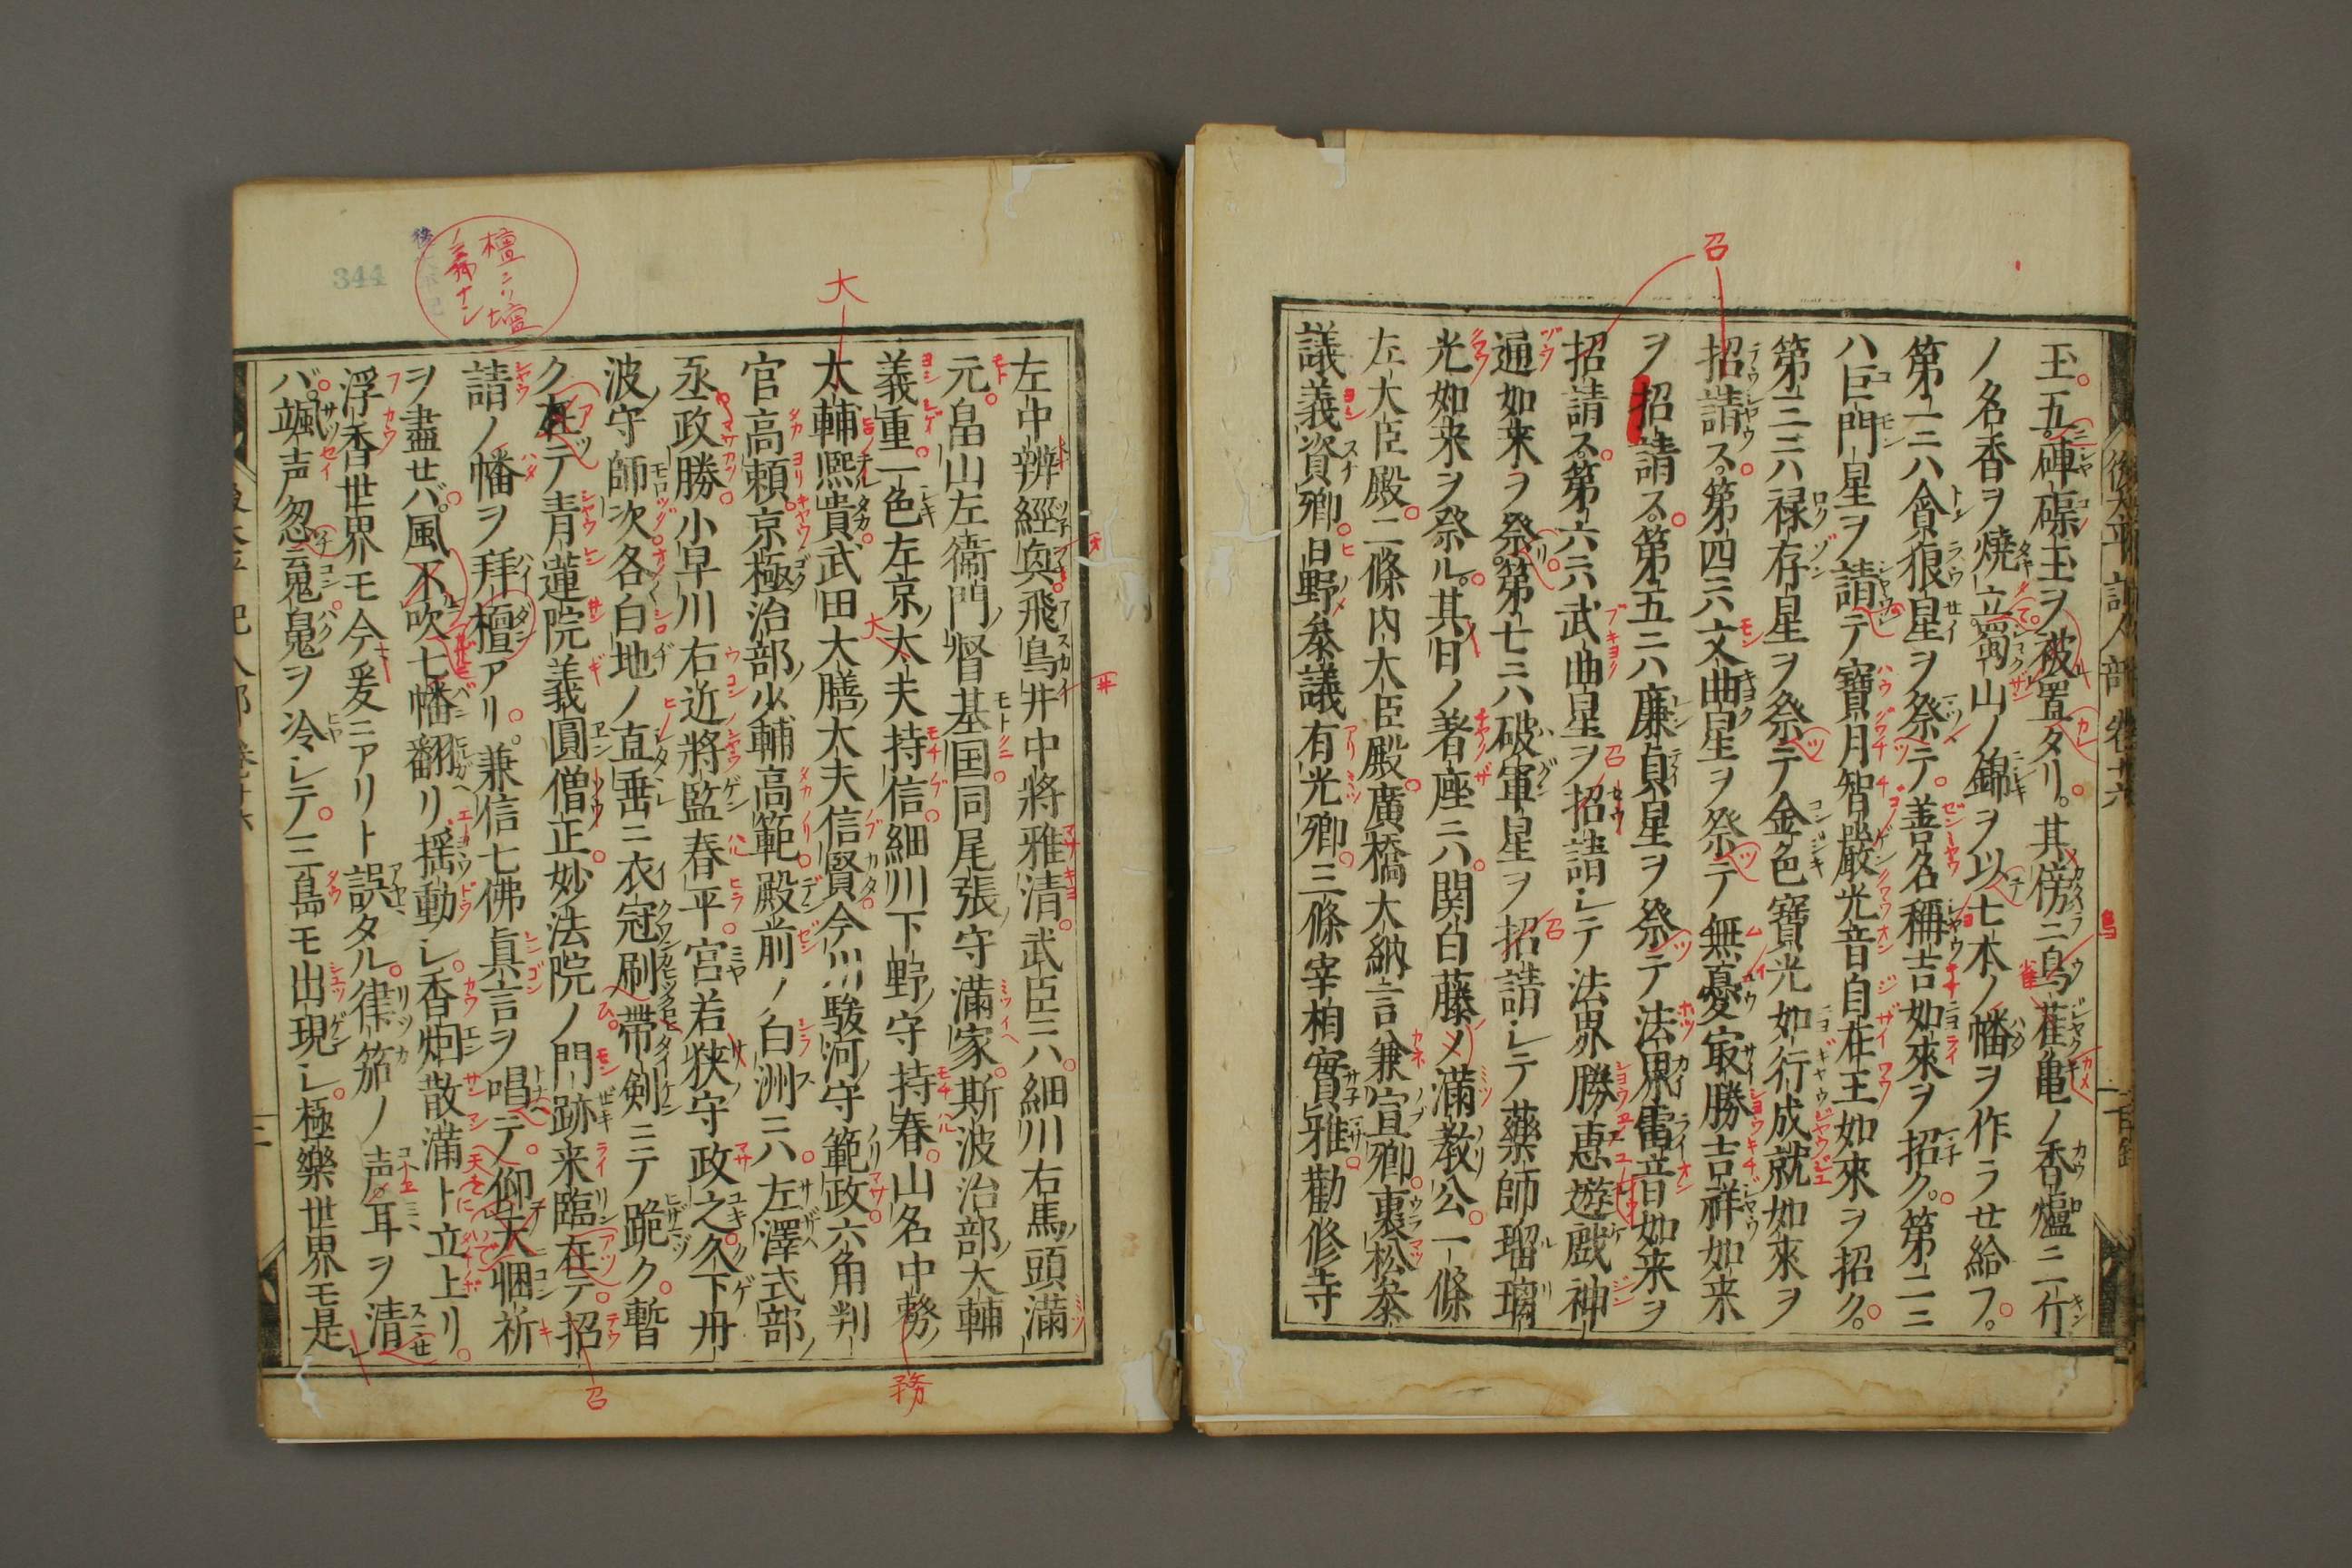 召
王五硨磲玉ヲ被置タリ。其傍ニ烏雀亀ノ香爐ニ二行
ノ名香ヲ燒立。蜀山ノ錦ヲ以七本ノ幡ヲ作ラセ給フ。
第一ニハ貪狼星ヲ祭テ善名稱吉如來ヲ招ク。第二ニ
ハ巨門星ヲ請テ寶月智嚴光音自在王如來ヲ招ク。
第三ニハ禄存星ヲ祭テ金色寶光如行成就如來ヲ
招請ス。第四ニハ文曲星ヲ祭テ無憂㝡勝吉祥如来
ヲ招請ス。第五ニハ廉貞星ヲ祭テ法界雷音如来ヲ
招請ス。第六ニハ武曲星ヲ招請シテ法界勝恵遊戯神
通如来ヲ祭。第七ニハ破軍星ヲ招請シテ藥師瑠璃
光如来ヲ祭ル。其日ノ著座ニハ関白藤ノ滿教公一條
左大臣殿二條内大臣殿廣橋大納言兼宣卿裏松叅
議義資卿日野叅議有光卿三條宰相實雅勸修寺
檀ニハ壇
ノ義ナシ
344
大
左中辨經興飛鳥井中將雅清武臣ニハ細川右馬頭滿
元畠山左衞門督基国同尾張守滿家斯波治部大輔
義重一色左京大夫持信細川下野守持春山名中務
太輔熈貴武田大膳大夫信賢今川駿河守範政六角判
官高頼京極治部少輔高範殿前ノ白洲ニハ左澤式部
丞政勝小早川右近將監春平宮若狭守政之久下丹
波守師次各白地ノ直垂ニ衣冠刷帶剣ニテ跪ク暫
ク在テ青蓮院義圓僧正妙法院ノ門跡来臨在テ招
請ノ幡ヲ拜檀アリ。兼信七佛眞言ヲ唱テ仰天悃祈
ヲ盡セバ。風不吹七幡翻リ揺動シ香烟散滿ト立上リ
浮香世界モ今爰ニアリト誤タル律笳ノ声耳ヲ清
バ。颯声忽魂鳧ヲ冷シテ三島モ出現シ極樂世界モ是
務
召